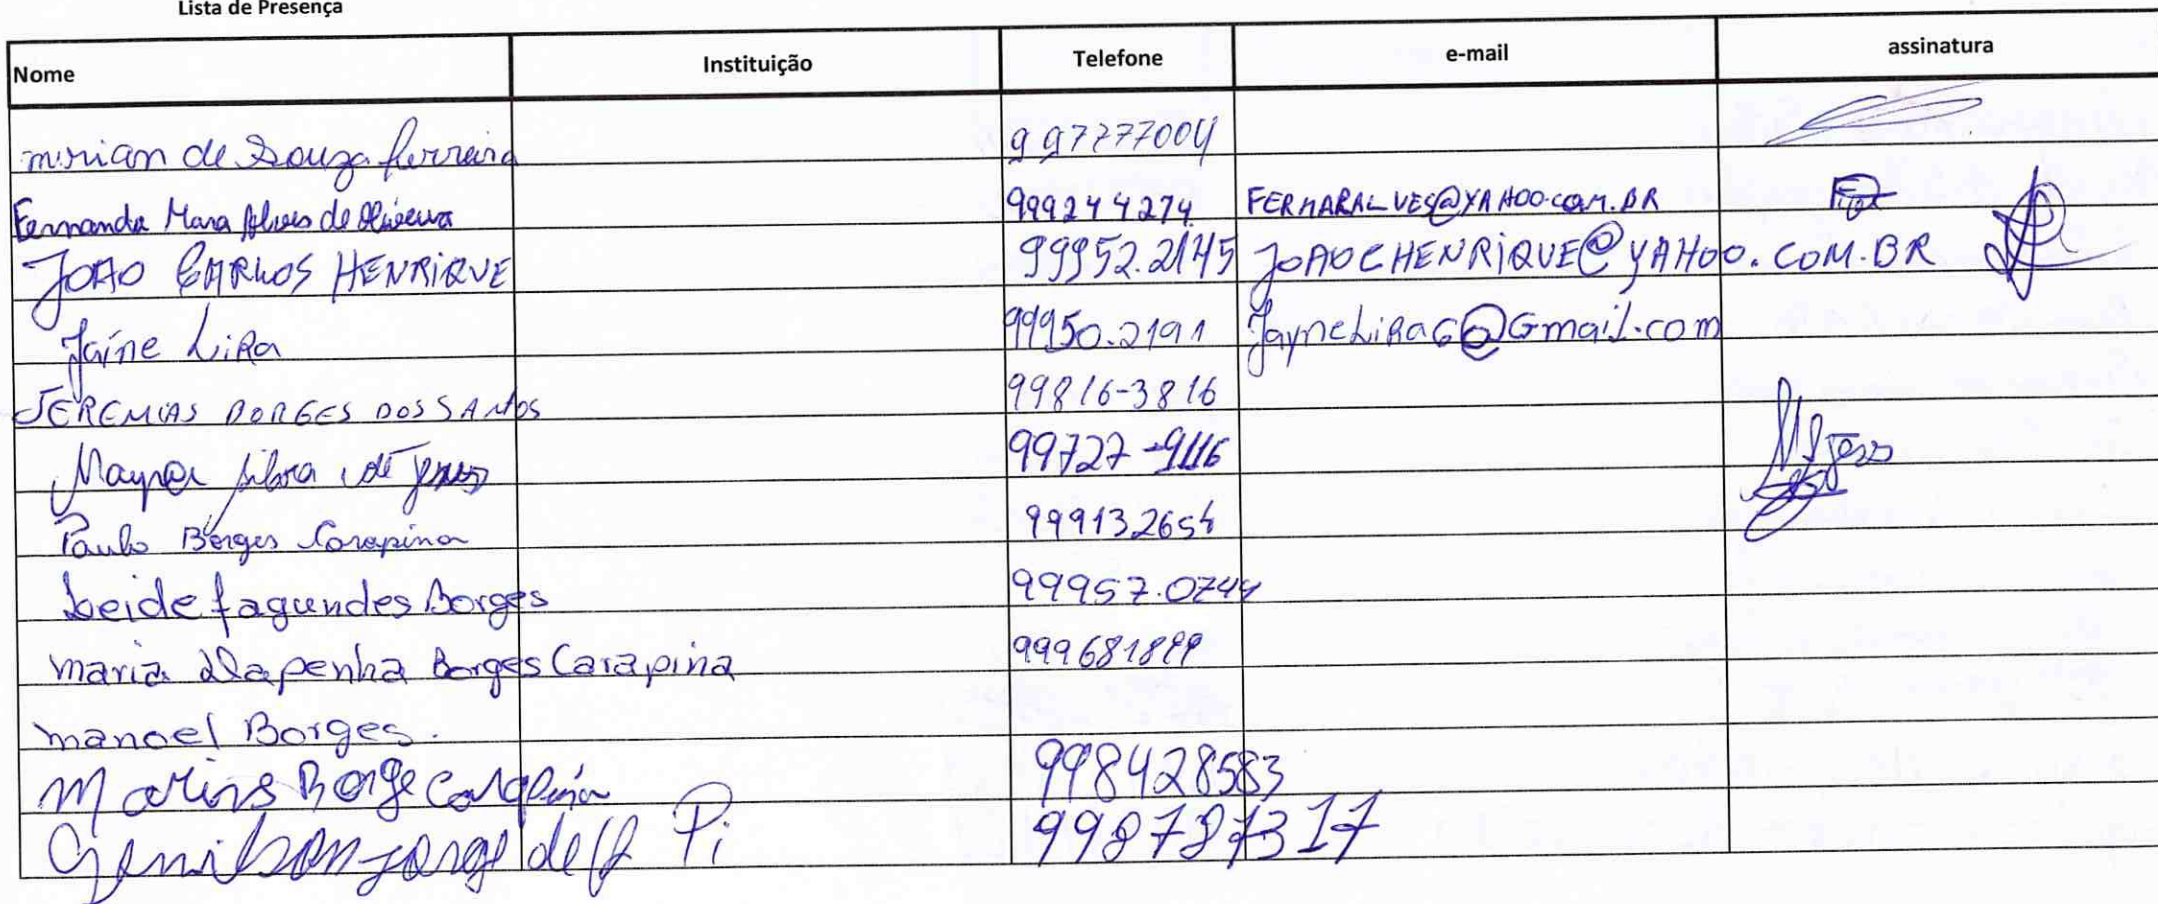 Lista de Presença
Nome Instituição Telefone e-mail assinatura
mirian de Souza ferreira 997277004
Fernanda Mara Alves de Oliveira 999244274 FERMARALVES@YAHOO.COM.BR
JOAO CARLOS HENRIQUE 99952.2145 JOAOCHENRIQUE@YAHOO.COM.BR
Jaíne LiRa 99950.2191 JayneLiRa6@Gmail.com
JEREMIAS BORGES DOS SANTOS 99816-3816
silva de Jesus 99727-9116
Paulo Borges Carapina 999132654
Leide fagundes Borges 99957.0744
maria Dapenha Borges Carapina 999681899
manoel Borges.
Borge Carapina 998428583
Genilson Jorge de 998787317